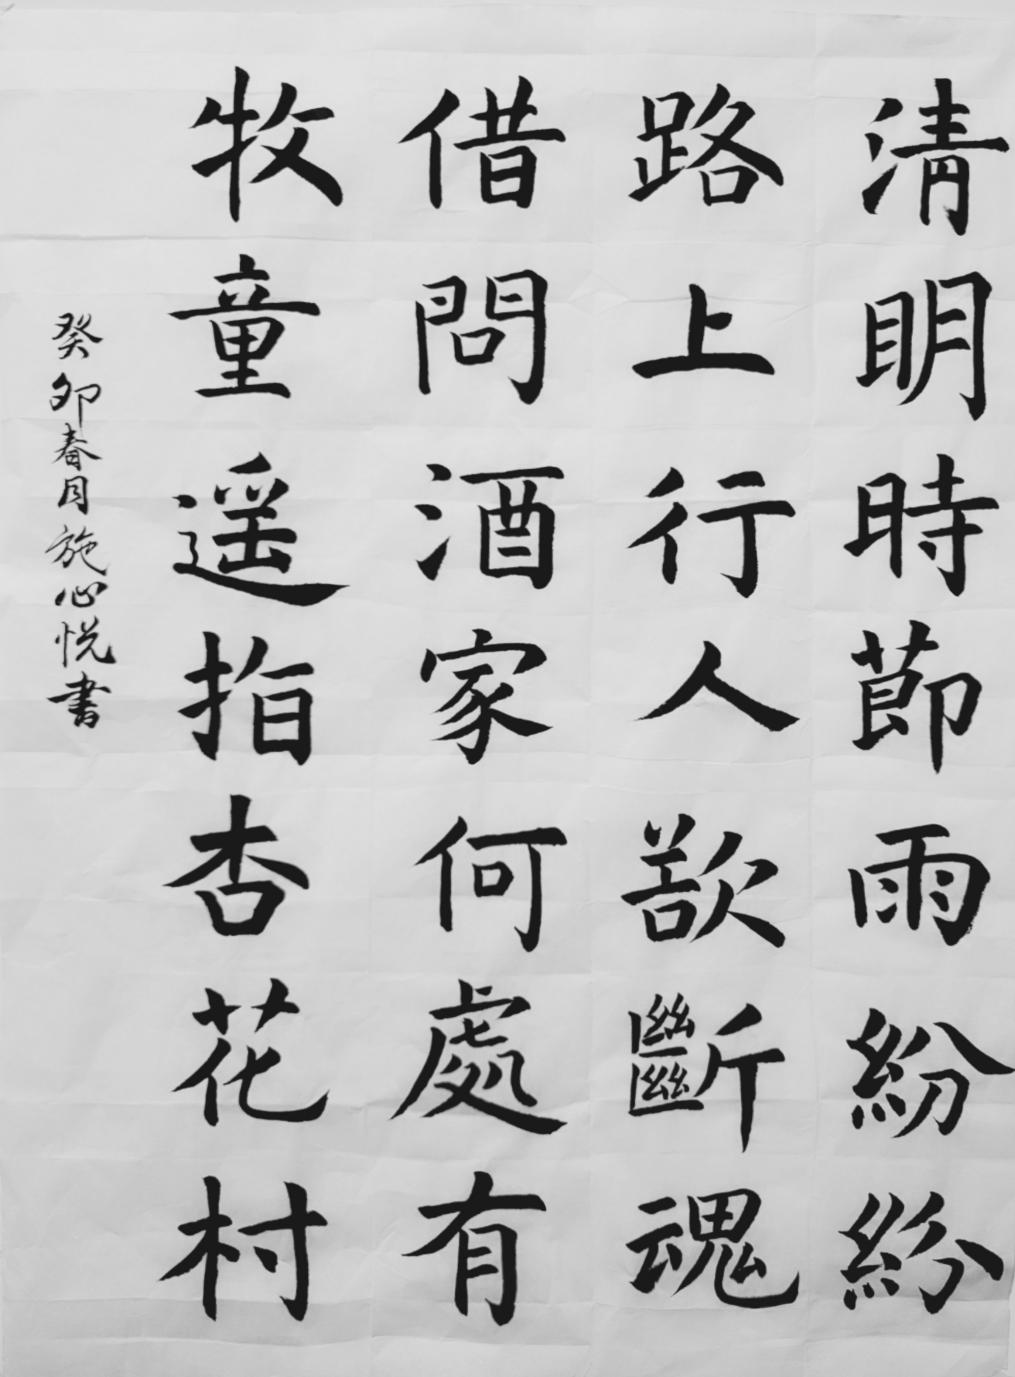 清明時節雨紛紛
路上行人欲斷魂
借問酒家何處有
牧童遥指杏花村
癸卯春月施心悦書